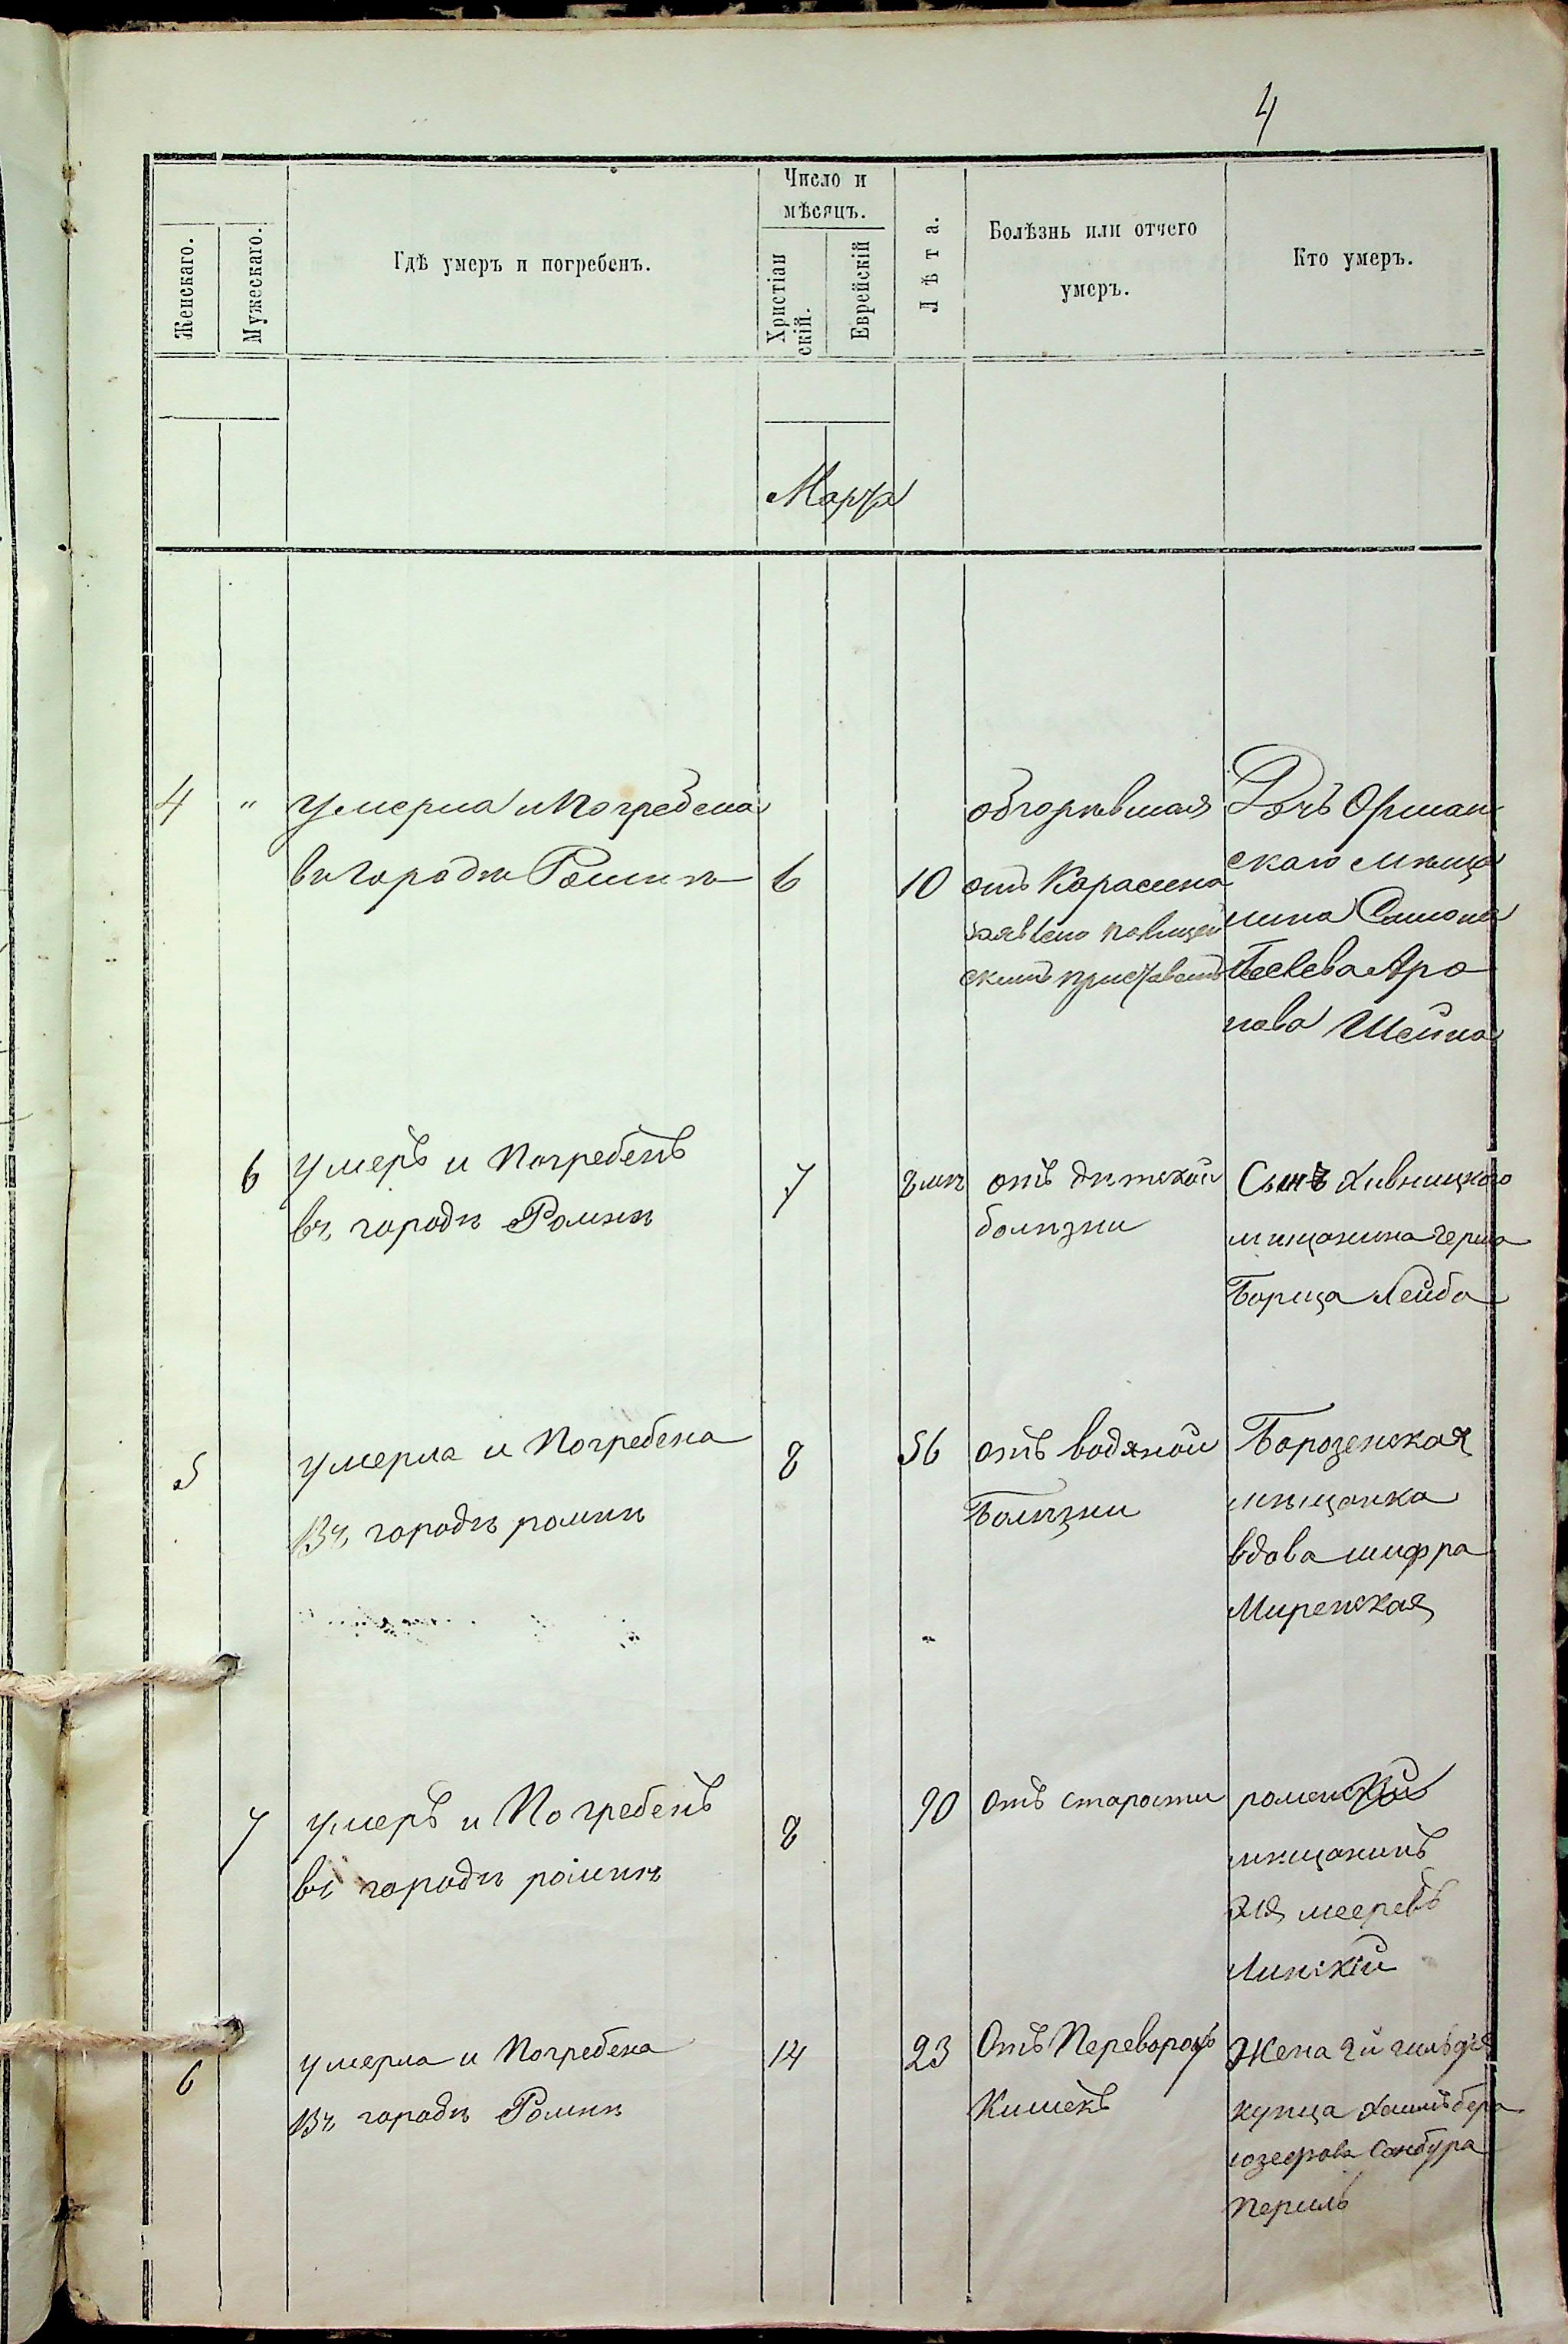 4
Число и
мѣсяцъ.
Женскаго.
Мужескаго.
Гдѣ умеръ и погребенъ.
Христіан
скій.
Еврейскій
Лѣта.
Болѣзнь или отчего
умеръ.
Кто умеръ.
Марта
4 " Умерла и Погребена
въ городѣ Ромнѣ 6 10
обгорѣвшая
отъ Карасина
заявлено полицей
скимъ приставомъ
Дочь Оршан
скаго мѣща
нина Симона
Аро
нова Шейна
6 Умеръ и Погребенъ
въ городѣ Ромнѣ 7 8 мѣ
отъ дѣтской
болѣзни
Сынъ
мѣщанина Герша
Борица Лейба
5 Умерла и Погребена
Въ городѣ ромнѣ 8 56
отъ водяной
Болѣзни
Борозенская
мѣщанка
вдова шифра
Миренская
7 Умеръ и Погребенъ
въ городѣ ромнѣ 8 90
Отъ старости
роменскій
мѣщанинъ
мееревъ
Линскій
6 умерла и Погребена
Въ городѣ Ромнѣ 14 23
Отъ Переворотъ
Кишекъ
Жена 2й гильдія
купца
юзефова
Перилъ